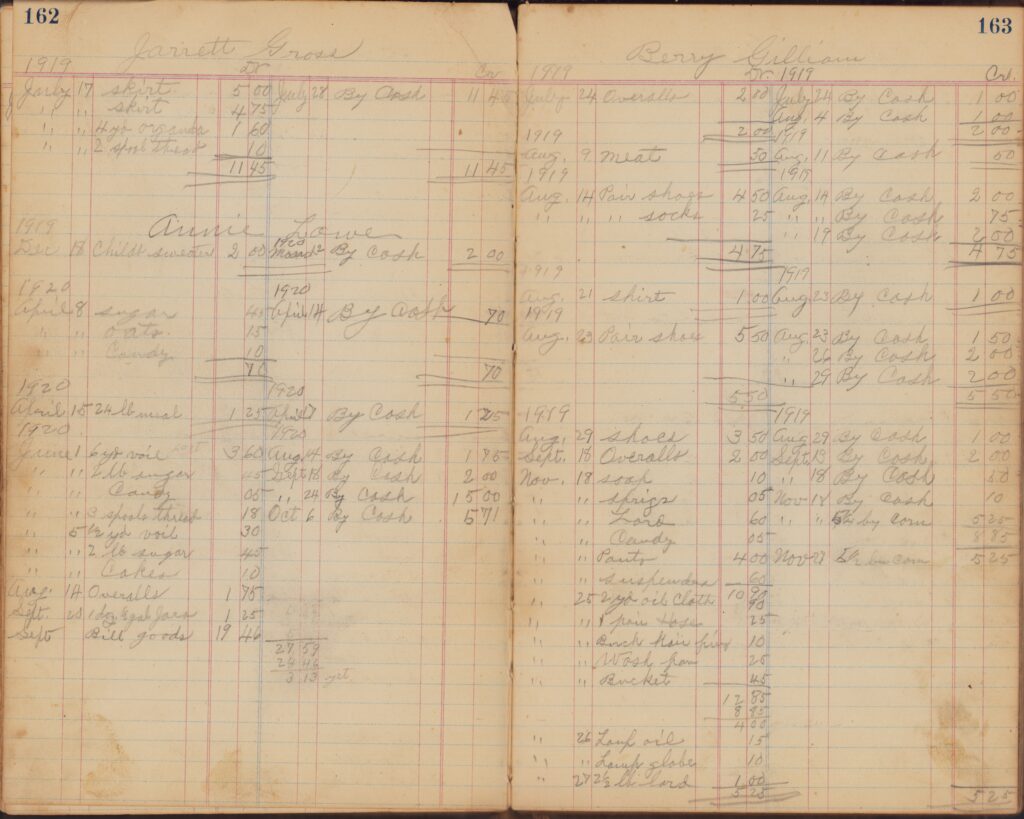 162
Jarrett Gross
1919 Dr Cr
July 17 skirt 5 00 July 28 By Cash 11 45
" " skirt 4 75
" " 4 yd organda 1 60
" " 2 spool thread 10
11 45 11 45
Annie Lowe
1919 1920
Dec 18 Childs sweater 2 00 12 By Cash 2 00
1920 1920
April 8 sugar 45 April 14 By Cash 70
" " oats 15
" " Candy 10
70 70
1920 1920
April 15 24 lb meal 1 25 April By Cash 1 25
1920 1920
June 1 6 yd voil 3 60 Aug. 14 By Cash 1 75
" " 2 lb sugar 45 Sept 18 By Cash 2 00
" " Candy 05 " 24 By Cash 15 00
" " 3 spools thread 18 Oct 6 By Cash 5 71
" 5 1/2 yd voil 30
" " 2 lb sugar 45
" " Cakes 10
Aug. 14 Overalls 1 75
Sept. 20 1 doz gal Jars 1 25
Sept Bill goods 19 46
27 59
24 46
3 13
163
Berry Gilliam
1919 Dr 1919 Cr.
July 24 Overalls 2 00 July 24 By Cash 1 00
Aug. 4 By Cash 1 00
1919 2 00 1919 2 00
Aug. 9 meat 50 Aug. 11 By Cash 50
1919 1919
Aug. 14 Pair shoes 4 50 Aug. 14 By Cash 2 00
" " " socks 25 " " By Cash 75
" 19 By Cash 2 00
4 75 4 75
1919 1919
Aug. 21 shirt 1 00 Aug 23 By Cash 1 00
1919
Aug. 23 Pair shoes 5 50 Aug. 23 By Cash 1 50
" 26 By Cash 2 00
" 29 By Cash 2 00
5 50 5 50
1919 1919
Aug. 29 shoes 3 50 Aug 29 By Cash 1 00
Sept. 18 Overalls 2 00 Sept. 13 By Cash 2 00
Nov. 18 soap 10 " 18 By Cash 50
" " sprigs 05 Nov 18 By Cash 10
" " Lard 60 " " by corn 5 25
" " Candy 05 8 85
" " Pants 4 00 Nov 27 bu corn 5 25
" " suspenders 60
10 90
" 25 2 yd oil Cloth 90
" " 1 pair Hose 25
" " Bunch Hair pins 10
" " Wash pan 25
" " Bucket 45
12 85
8 85
4 00
" 26 Lamp oil 15
" " Lamp globe 10
" 27 2 1/2 lb lard 1 00
5 25 5 25